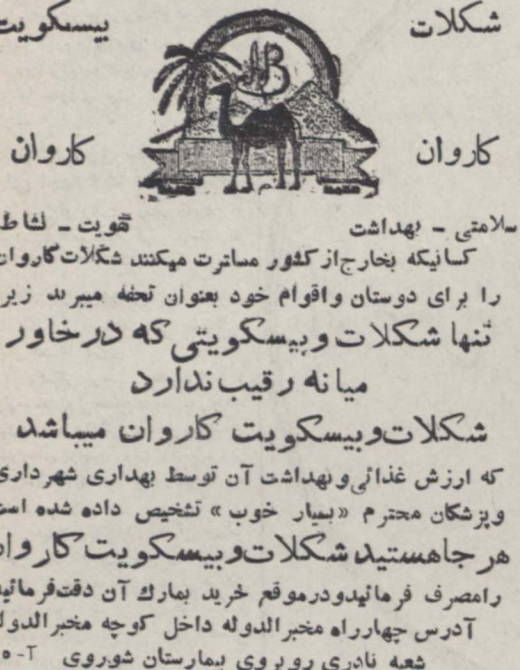 شکلات
بیسکویت
NB
کاروان
کاروان
سلامتی - بهداشت
تقویت - نشاط
کسانیکه بخارج از کشور مسافرت میکنند شکلات کاروان
را برای دوستان و اقوام خود بعنوان تحفه میبرند زیر
تنها شکلات و بیسکویتی که در خاور
میانه رقیب ندارد
شکلات و بیسکویت کاروان میباشد
که ارزش غذائی و بهداشت آن توسط بهداری شهرداری
و پزشکان محترم «بسیار خوب» تشخیص داده شده است
هر جا هستید شکلات و بیسکویت کاروان
را مصرف فرمائید و در موقع خرید بمارك آن دقت فرمائید
آدرس چهارراه مخبرالدوله داخل کوچه مخبرالدوله
شعبه نادری روبروی بیمارستان شوروی آ-۵